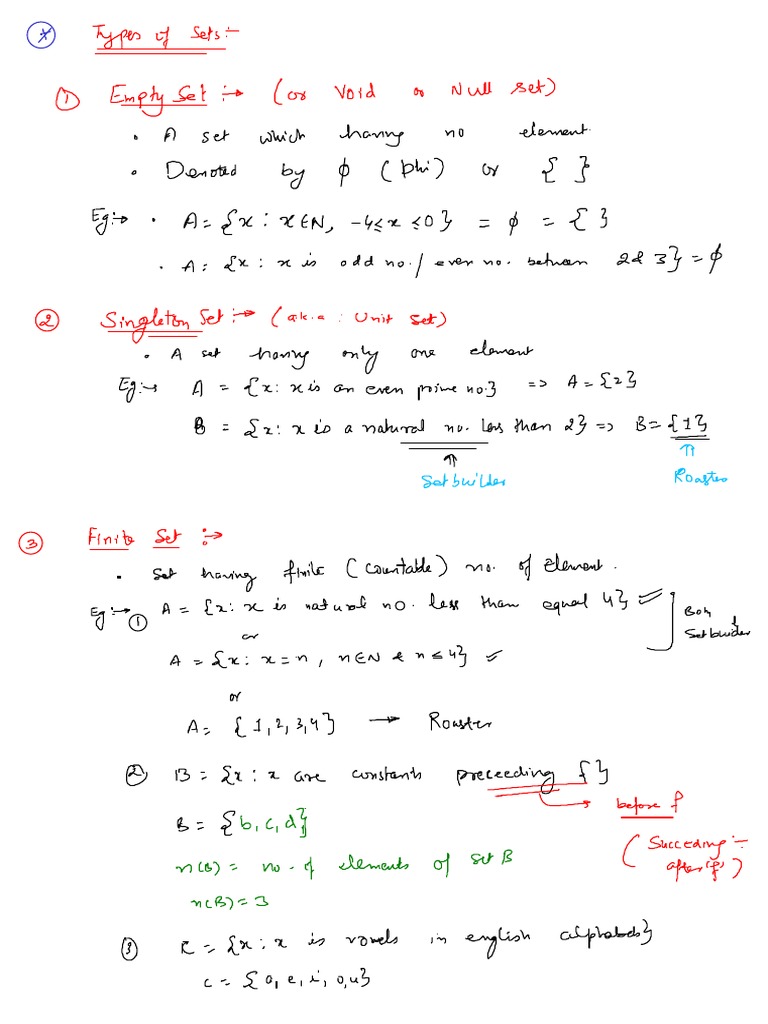 * Types of Sets:-
① Empty Set :→ (or Void or Null set)
• A set which having no element.
• Denoted by φ (phi) or { }
Eg:→ • A = {x : x∈N, -4≤x≤0} = φ = { }
• A = {x : x is odd no./even no. between 2 & 3} = φ
② Singleton Set :→ (a.k.a : Unit Set)
• A set having only one element
Eg:→ A = {x : x is an even prime no.} => A = {2}
B = {x : x is a natural no. less than 2} => B = {1}
⇑ ⇑
Setbuilder Roaster
③ Finite Set :→
• Set having finite (countable) no. of element.
Eg:→ ① A = {x : x is natural no. less than equal 4}
or
Both
Setbuider
A = {x : x = n, n∈N & n ≤ 4}
or
A = {1, 2, 3, 4} → Roaster
② B = {x : x are constants preceeding f}
before f
B = {b, c, d}
(Succeding :-
after 'f')
n(B) = no. of elements of set B
n(B) = 3
③ C = {x : x is vowels in english alphabets}
C = {a, e, i, o, u}